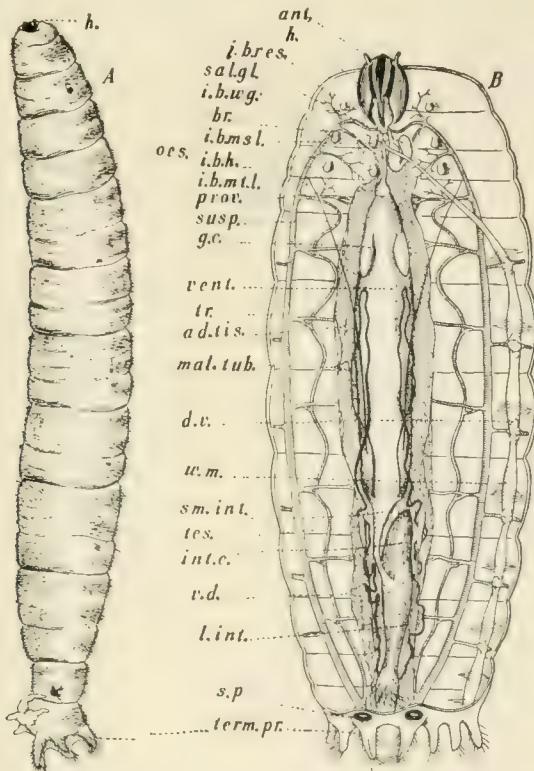 h.
A
ant,
h.
i.b.res.
sal.gl.
i.b.wg.
br.
i.b.msl.
oes.
i.b.h.
i.b.mt.l.
prov.
susp.
g.c.
vent.
tr.
ad.tis.
mal.tub.
d.v.
w.m.
sm.int.
tes.
int.c.
v.d.
l.int.
s.p
term.pr.
B